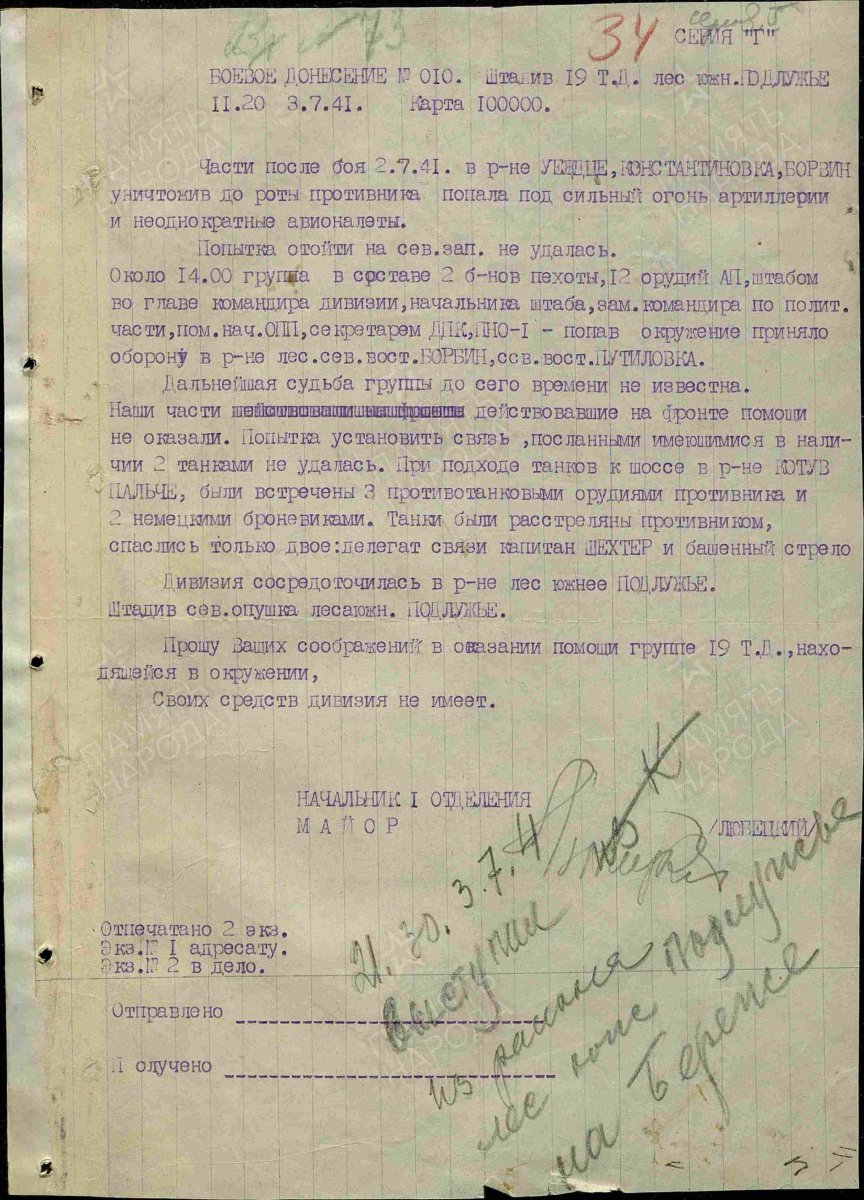 Вх № 73
34
СЕРИЯ "Г"
БОЕВОЕ ДОНЕСЕНИЕ № 010. Штадив 19 Т.Д. лес южн.ПОДЛУЖЬЕ
II.20 3.7.41. Карта I00000.
Части после боя 2.7.41. в р-не УЕЗДЦЕ,КОНСТАНТИНОВКА,БОРВИН
уничтожив до роты противника попала под сильный огонь артиллерии
и неоднократные авионалеты.
Попытка отойти на сев.зап. не удалась.
Около I4.00 группа в составе 2 б-нов пехоты,I2 орудий АП,штабом
во главе командира дивизии,начальника штаба,зам.командира по полит.
части,пом.нач.ОПП,секретарем ДПК,ПНО-I - попав окружение приняло
оборону в р-не лес.сев.вост.БОРБИН,ссв.вост.ПУТИЛОВКА.
Дальнейшая судьба группы до сего времени не известна.
Наши части действовавшие на фронте помощи
не оказали. Попытка установить связь ,посланными имеющимися в нали-
чии 2 танками не удалась. При подходе танков к шоссе в р-не КОТУВ
ПАЛЬЧЕ, были встречены 3 противотанковыми орудиями противника и
2 немецкими броневиками. Танки были расстреляны противником,
спаслись только двое:делегат связи капитан ШЕХТЕР и башенный стрело
Дивизия сосредоточилась в р-не лес южнее ПОДЛУЖЬЕ.
Штадив сев.опушка лесаюжн. ПОДЛУЖЬЕ.
Прошу Ваших соображений в оказании помощи группе I9 Т.Д.,нахо-
дящейся в окружении,
Своих средств дивизия не имеет.
НАЧАЛЬНИК I ОТДЕЛЕНИЯ
М А Й О Р /ЛЮБЕЦКИЙ/
Отпечатано 2 экз.
Экз.№ I адресату.
Экз.№ 2 в дело.
Отправлено
П олучено
21.30. 3.7.41
выступил
из района
лес южн Подлужье
на Берегце
ПАМЯТЬ НАРОДА